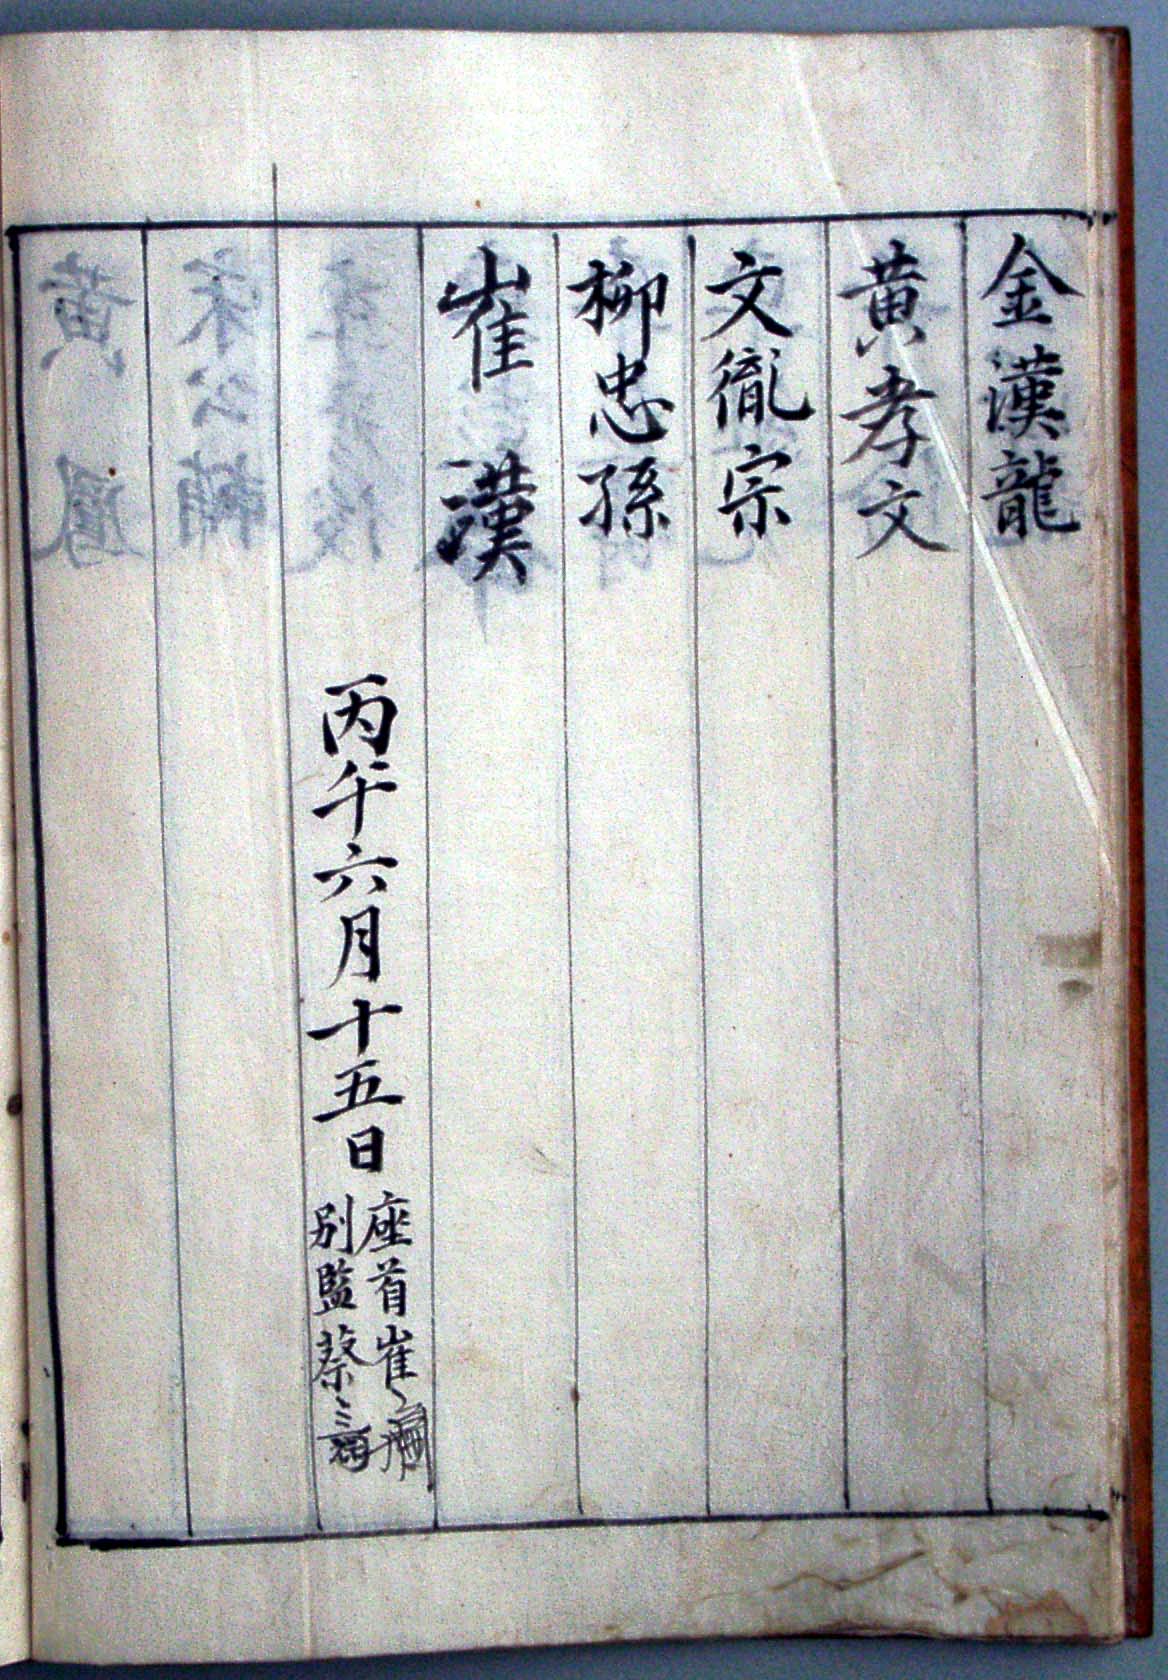 金漢龍
黃孝文
文胤宗
柳忠孫
崔漢
丙午六月十五日
座首崔
別監蔡